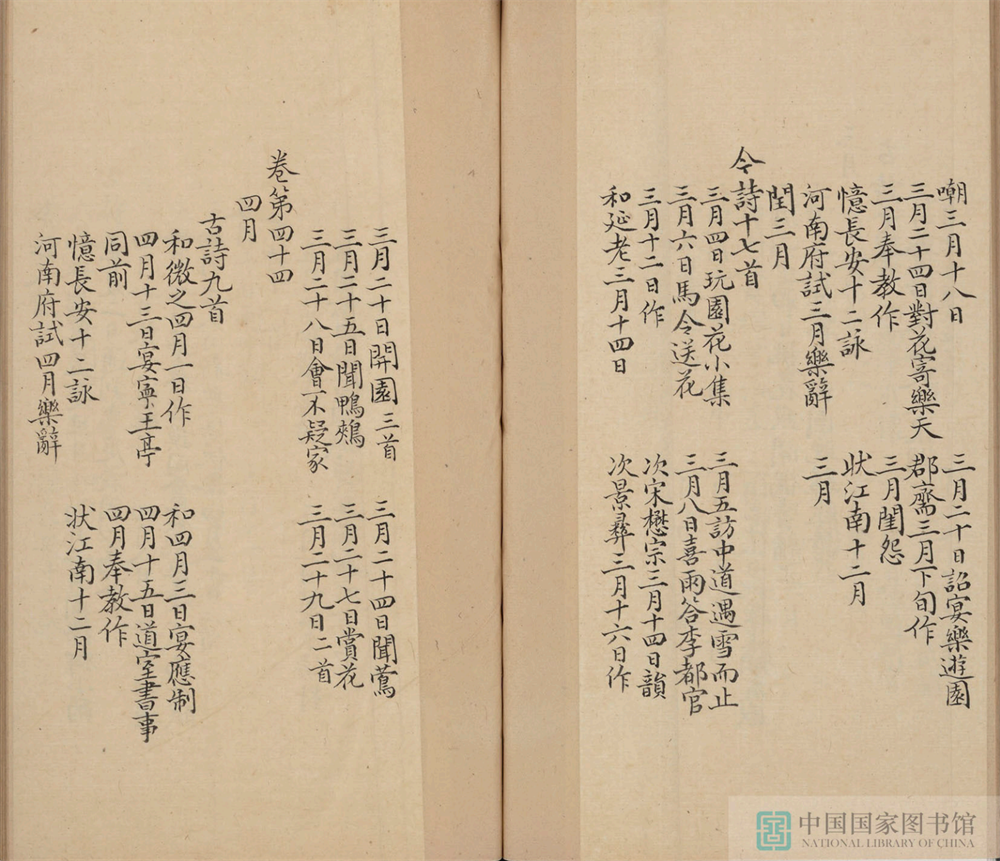 嘲三月十八日　三月二十日詔宴樂遊園
三月二十四日對花寄樂天　郡齋三月下旬作
三月奉教作　三月閨怨
憶長安十二詠　狀江南十二月
河南府試三月樂辭　三月
閏三月
今詩十七首
三月四日玩園花小集　三月五訪中道遇雪而止
三月六日馬令送花　三月八日喜雨答李都官
三月十二日作　次宋懋宗三月十四日韻
和延老三月十四日　次景彞三月十六日作
三月二十日開園三首　三月二十四日聞鶯
三月二十五日聞鴨鵊　三月二十七日賞花
三月二十八日會不疑家　三月二十九日二首
卷第四十四
四月
古詩九首
和微之四月一日作　和四月三日宴應制
四月十三日宴寧王亭　四月十五日道室書事
同前　四月奉教作
憶長安十二詠　狀江南十二月
河南府試四月樂辭
中国国家图书馆
NATIONAL LIBRARY OF CHINA